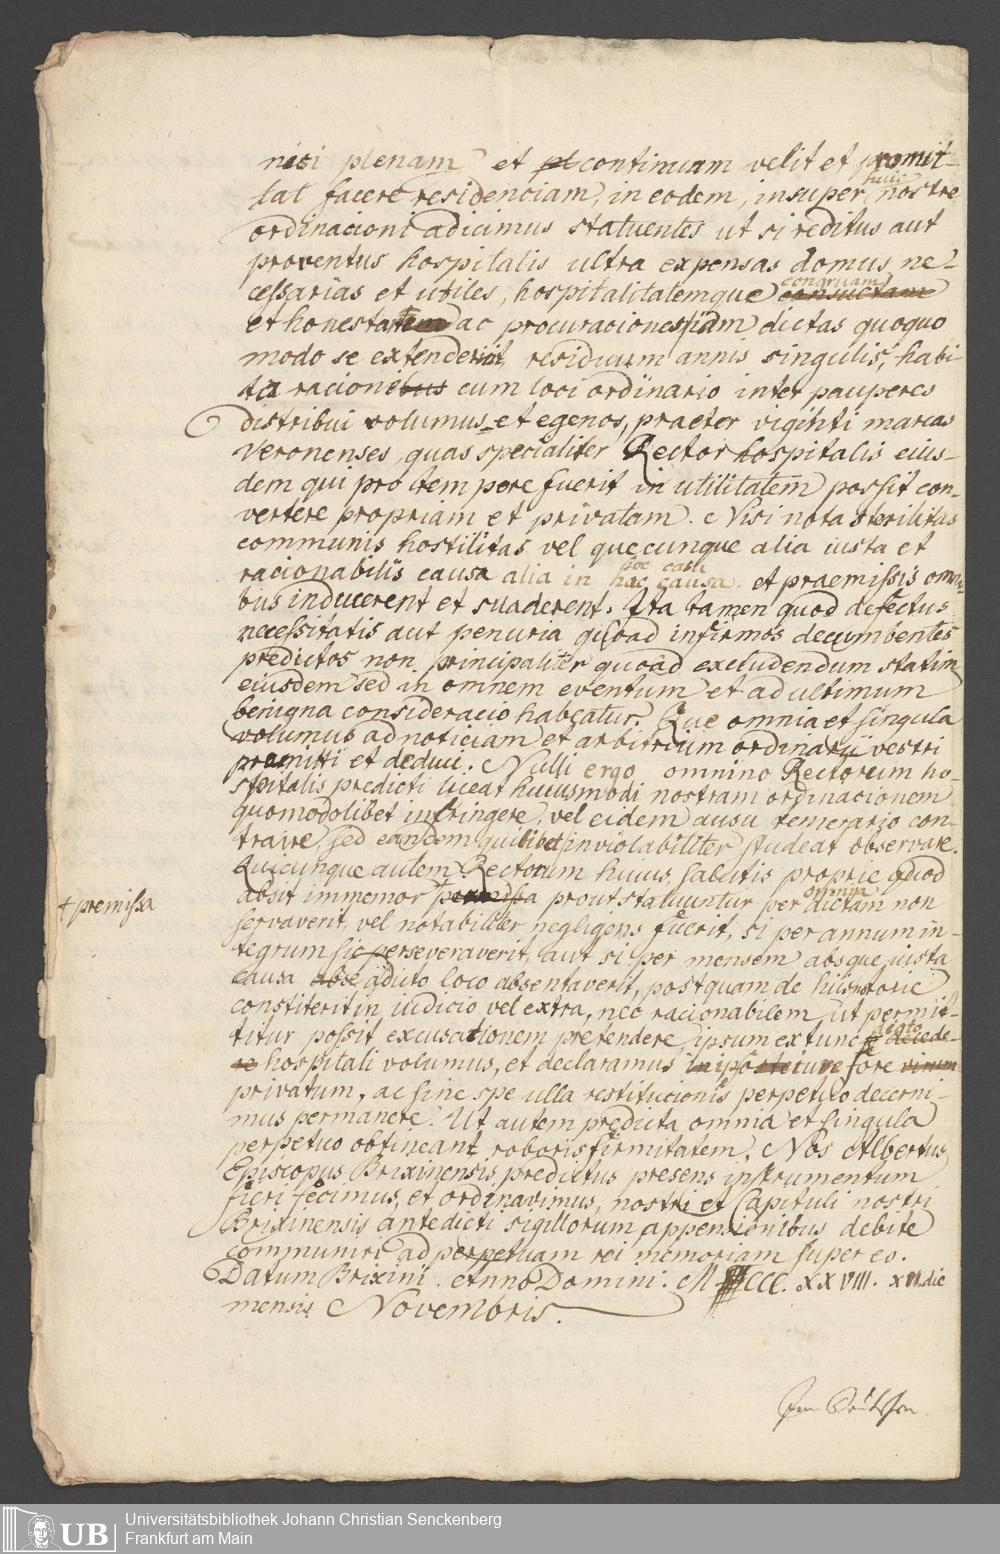 nisi plenam et pl continuam velit et promit-
tat facere residenciam, in eodem, insuper huic nostre
ordinacioni adicimus statuentes ut si reditus aut
proventus hospitalis ultra expensas domus ne-
cessarias et utiles, hospitalitatemque congruam consuetam
et honestatem ac procuraciones iam dictas quoquo
modo se extenderint, residuum annis singulis, habi-
ta racionibus cum loci ordinario inter pauperes
distribui volumus et egenos, praeter viginti marcas
Veronenses, quas specialiter Rector hospitalis eius-
dem qui pro tempore fuerit in utilitatem possit con-
vertere propriam et privatam. Nisi nota sterilitas
communis hostilitas vel quecunque alia iusta et
racionabilis causa alia in hoc casu hac causa et praemissis omni-
bus inducerent et suaderent. Ita tamen quod defectus
necessitatis aut penuria quoad infirmos decumbentes
predictos non principaliter quoad excludendum statim
eiusdem sed in omnem eventum et ad ultimum
benigna consideracio habeatur. Que omnia et singula
volumus ad noticiam et arbitrium ordinarii vestri
premitti et deduci. Nulli ergo omnino Rectorum ho-
spitalis predicti liceat huiusmodi nostram ordinacionem
quomodolibet infringere, vel eidem ausu temerario con-
traire, sed eandem quilibet inviolabiliter studeat observare.
Quicunque autem Rectorum huius, salutis proprie quod
absit immemor permissa prout statuuntur per omnia dictam non
+ premissa
servaverit, vel notabiliter negligens fuerit, si per annum in-
tegrum sic perseveraverit, aut si per mensem absque iusta
causa abse a dicto loco absentaverit, postquam de hiis notorie
constiterit in iudicio vel extra, nec racionabilem ut permit-
titur possit excusationem pretendere, ipsum extunc a dicto decede-
re hospitali volumus, et declaramus iure fore virum
privatum, ac sine spe ulla restitucionis perpetuo decerni-
mus permanere. Ut autem predicta omnia et singula
perpetuo obtineant roboris firmitatem, Nos Albertus
Episcopus Brixinensis predictus presens instrumentum
fieri fecimus, et ordinavimus, nostri et Capituli nostri
Brixinensis antedicti sigillorum appensionibus debite
communiri ad perpetuam rei memoriam super eo.
Datum Brixini. Anno Domini. M CCC. XXVIII. XVI. die
mensis Novembris.
UB
Universitätsbibliothek Johann Christian Senckenberg
Frankfurt am Main